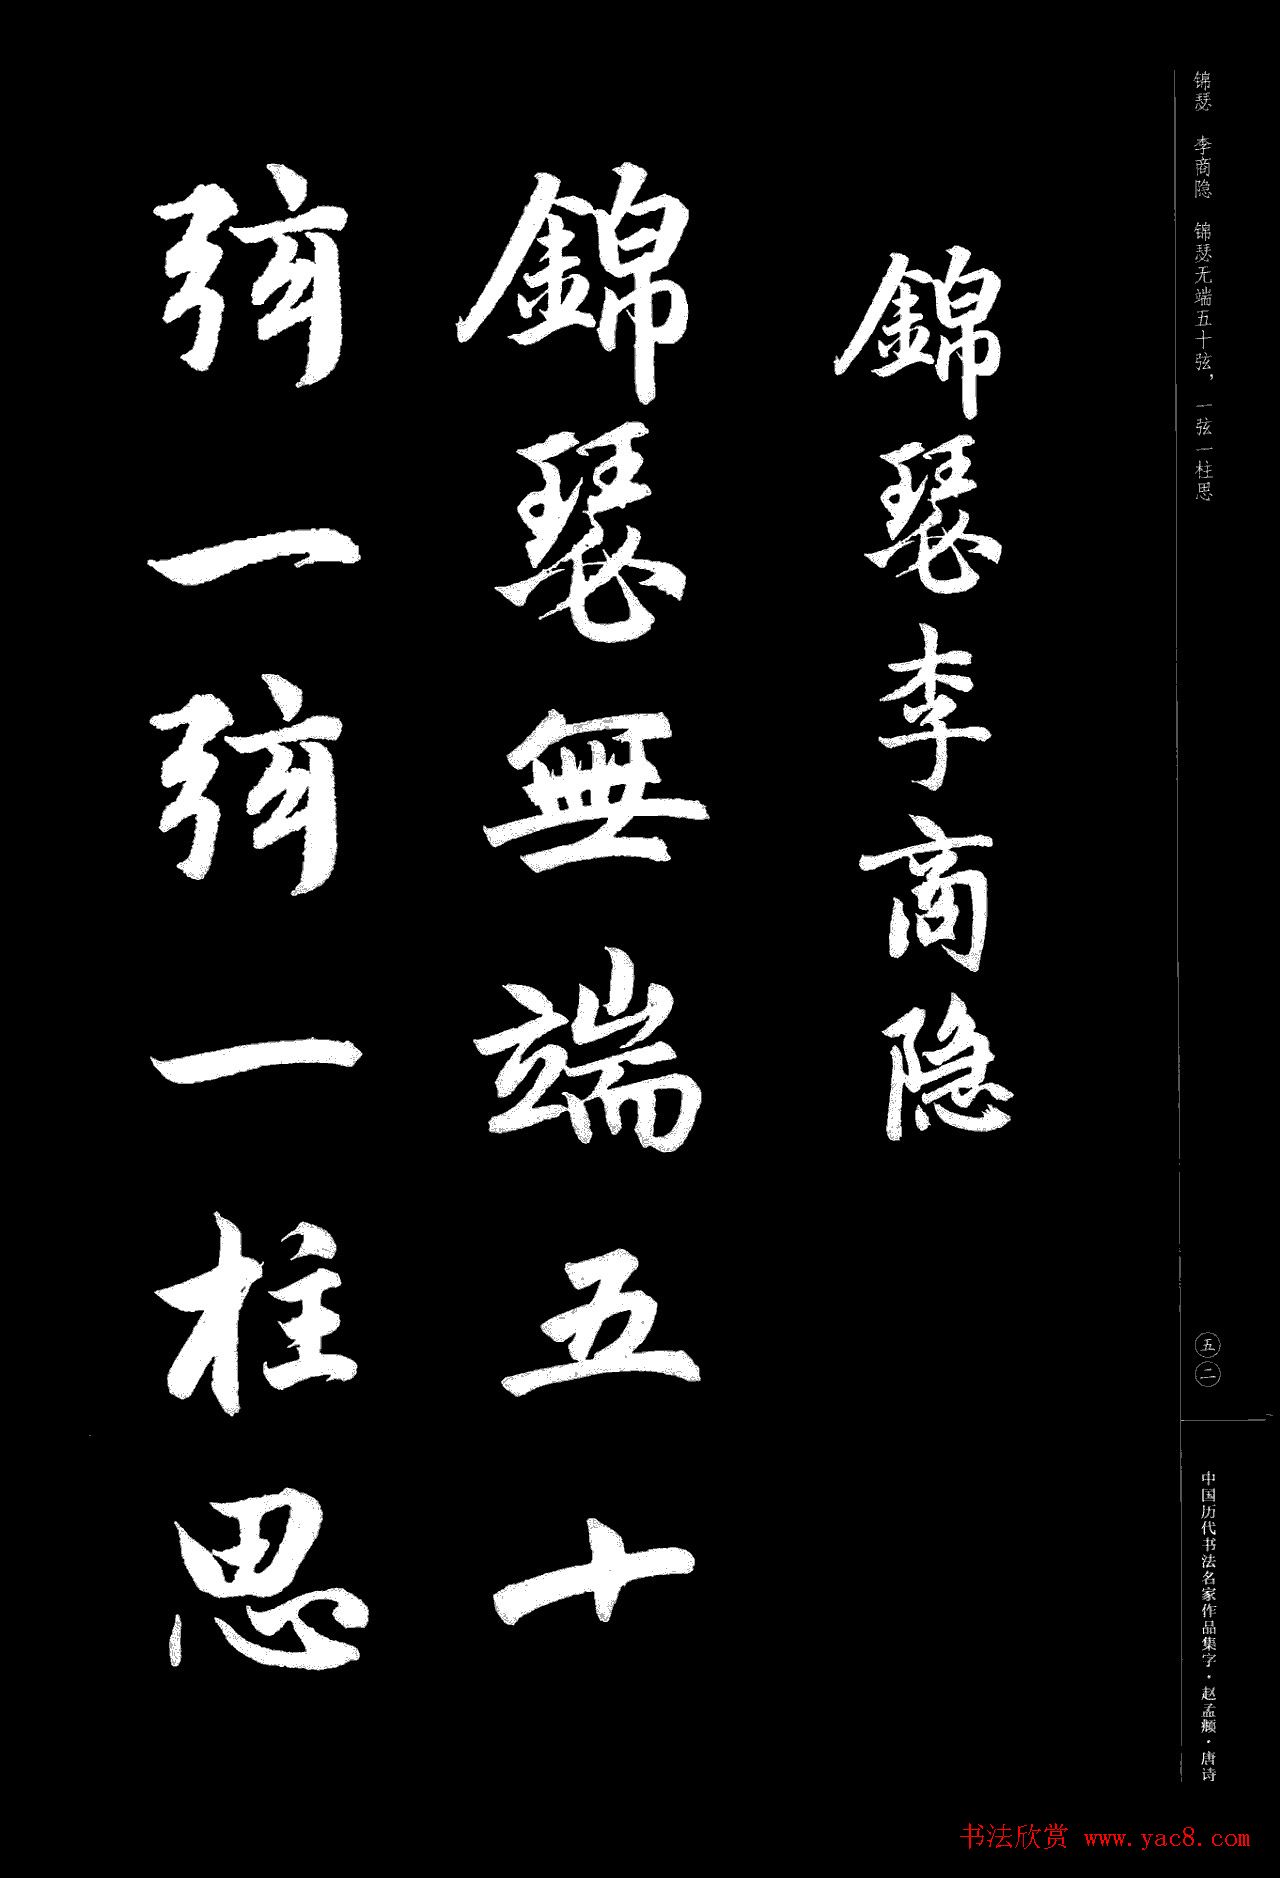 锦瑟 李商隐 锦瑟无端五十弦，一弦一柱思
錦瑟李商隐
錦瑟無端五十
弦一弦一柱思
五二
中国历代书法名家作品集字·赵孟頫·唐诗
书法欣赏 www.yac8.com